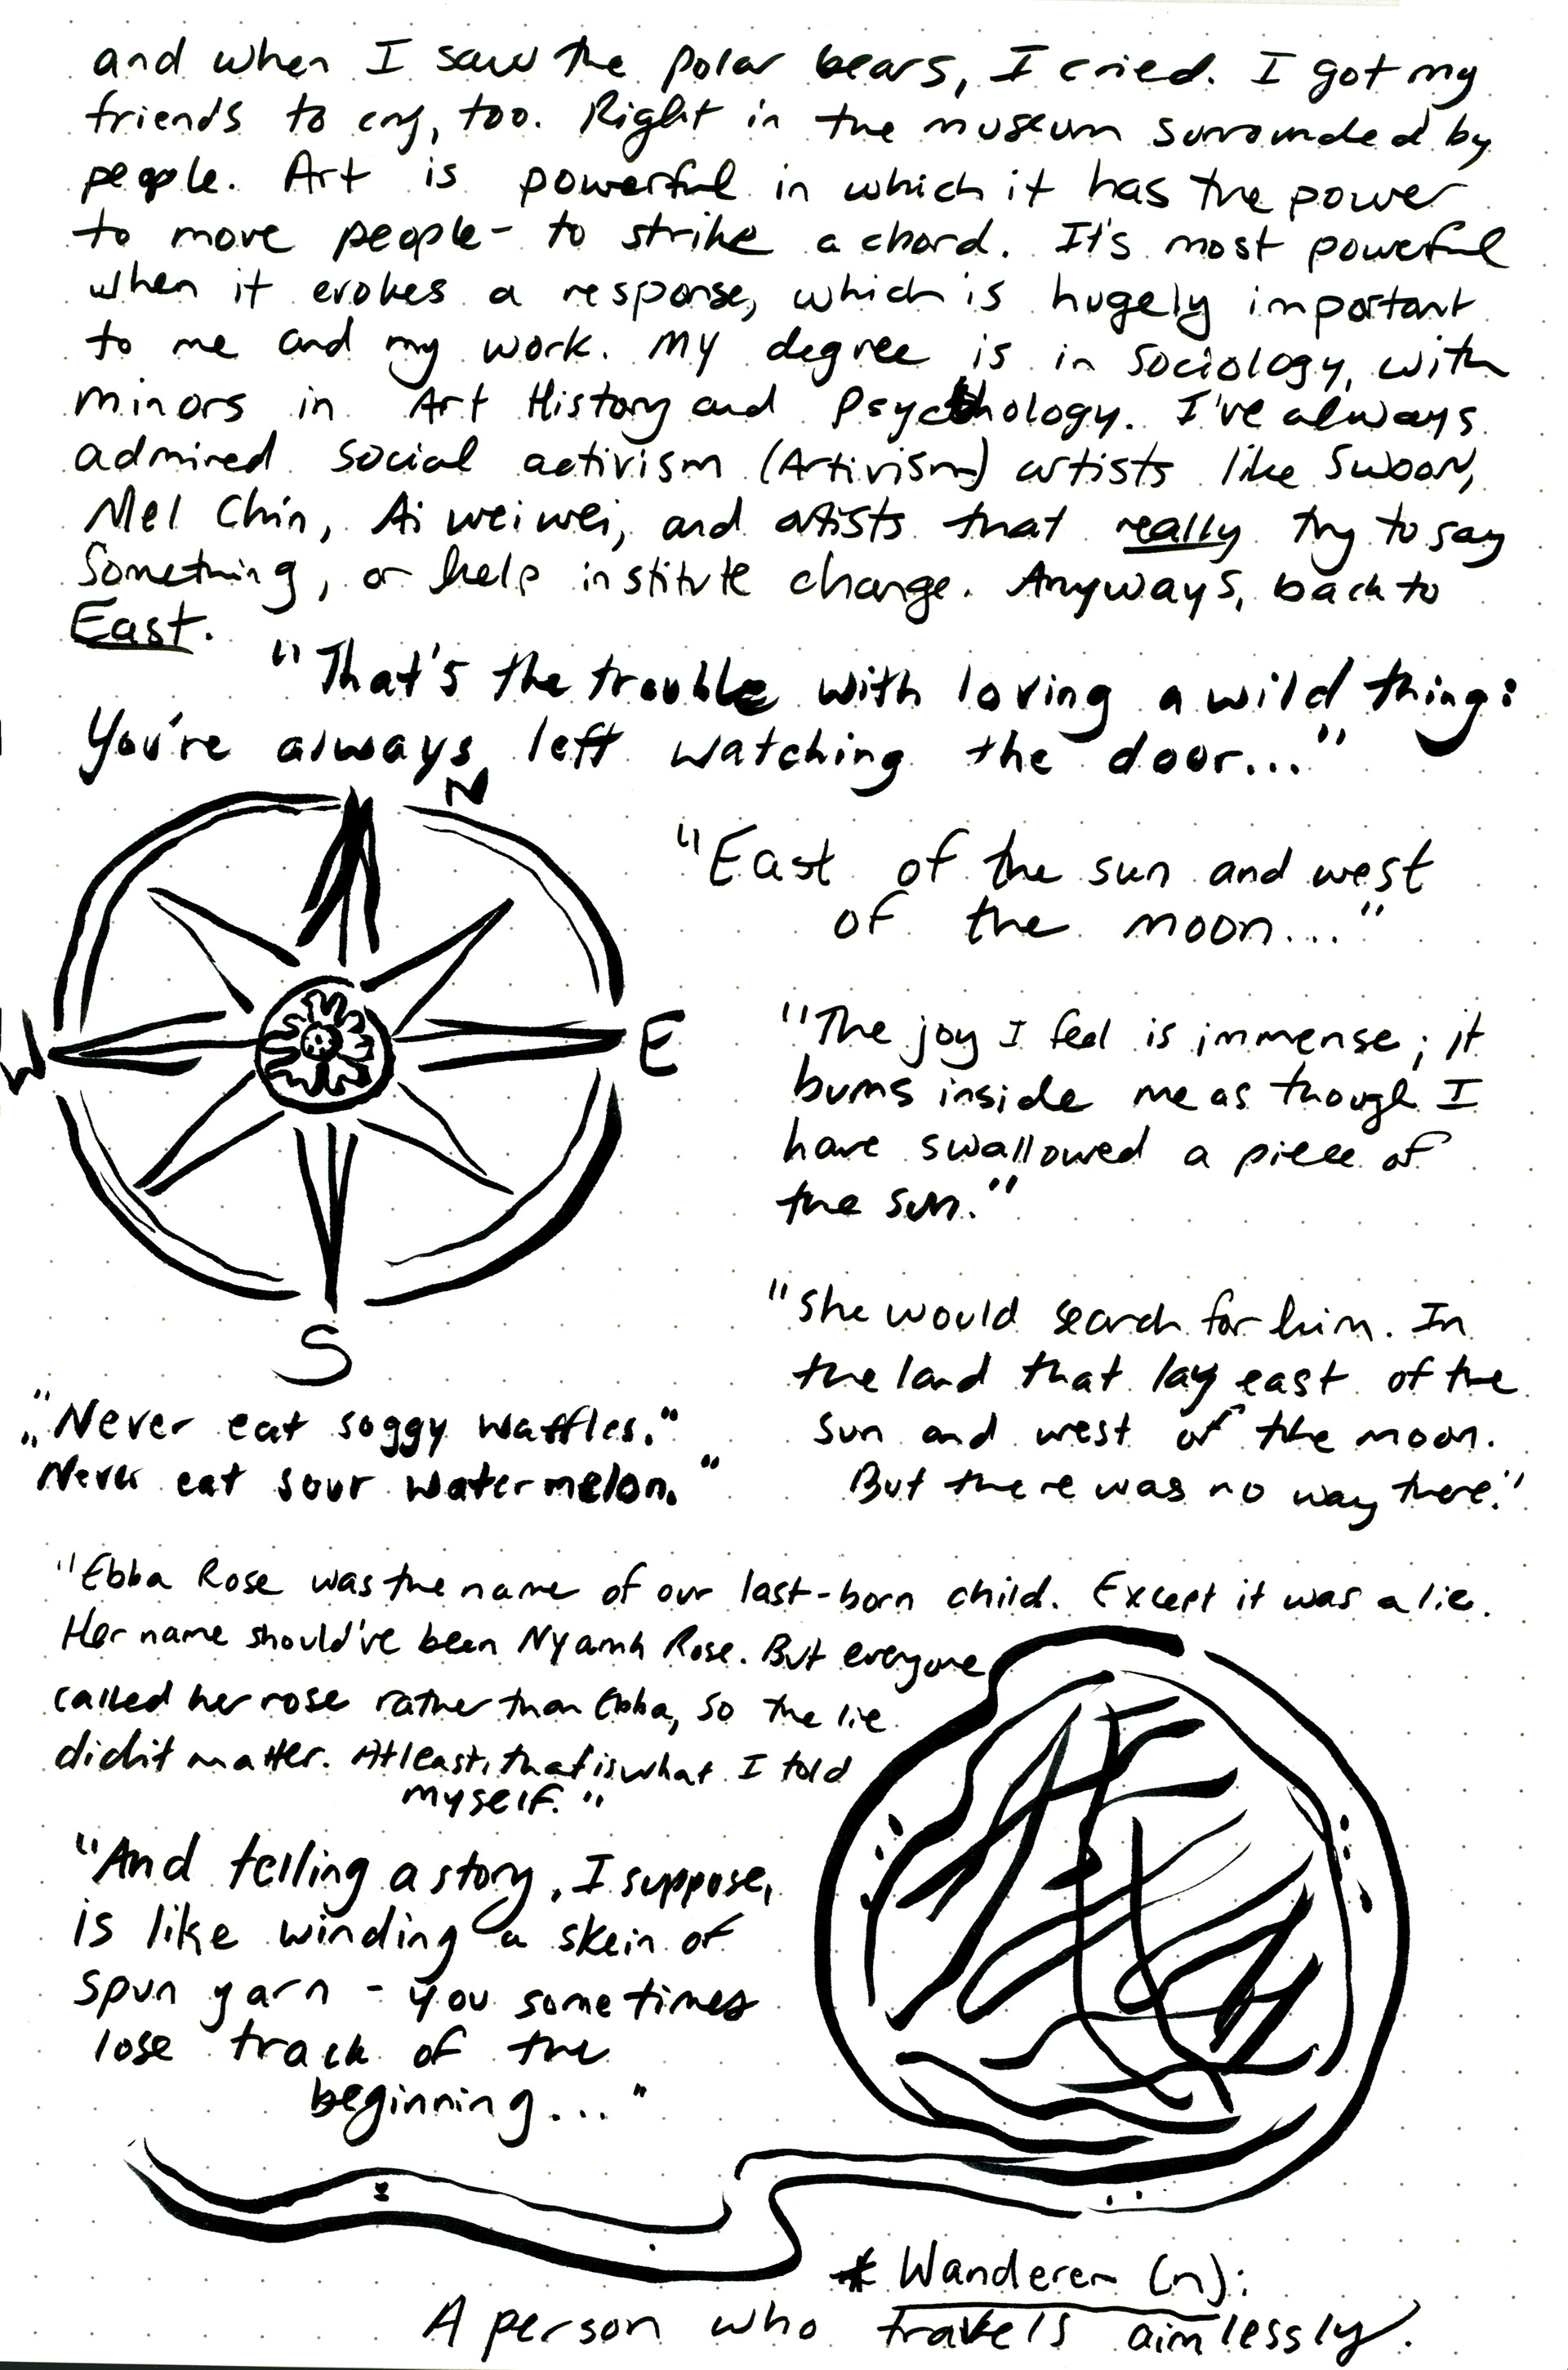 and when I saw the polar bears, I cried. I got my
friends to cry, too. Right in the museum surrounded by
people. Art is powerful in which it has the power
to move people- to strike a chord. It's most powerful
when it evokes a response, which is hugely important
to me and my work. My degree is in Sociology, with
minors in Art History and Psychology. I've always
admired social activism (Artivism) artists like Swoon,
Mel Chin, Ai weiwei, and artists that really try to say
Something, or help institute change. Anyways, back to
East.
"That's the trouble with loving a wild thing:
You're always left watching the door..."
N
W
E
S
"East of the sun and west
of the moon..."
"The joy I feel is immense; it
burns inside me as though I
have swallowed a piece of
the sun."
"She would search for him. In
the land that lay east of the
sun and west of the moon.
But there was no way there."
"Never eat soggy waffles."
"Never eat sour watermelon."
"Ebba Rose was the name of our last-born child. Except it was a lie.
Her name should've been Nyamh Rose. But everyone
called her rose rather than Ebba, so the lie
didn't matter. At least, that is what I told
myself."
"And telling a story, I suppose,
is like winding a skein of
spun yarn - you sometimes
lose track of the
beginning..."
* Wanderer (n):
A person who travels aimlessly.